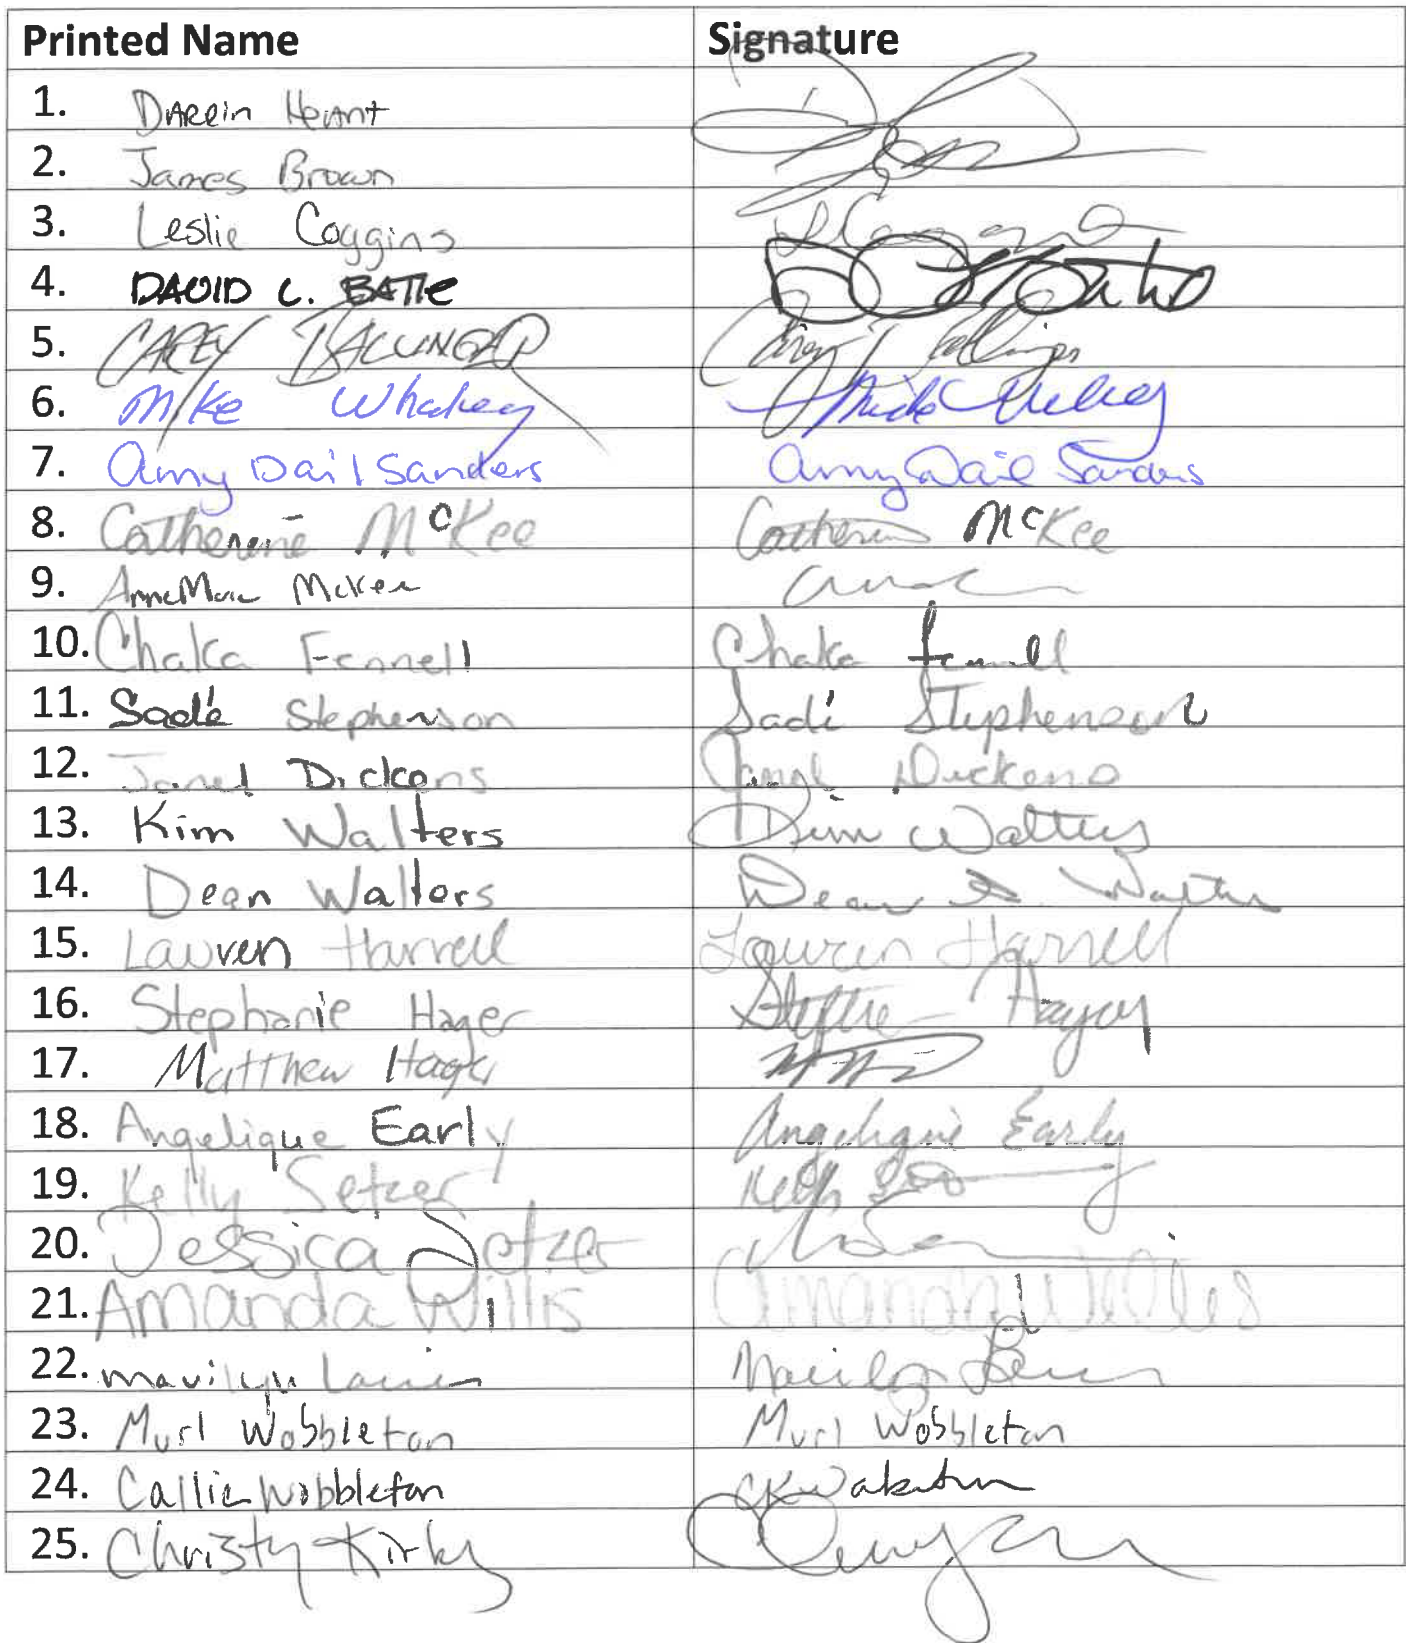 Printed Name Signature
1. Darrin
2. James Brown
3. Leslie Coggins
4. DAVID C. BATTE
5. CAREY BALLINGER Carey Ballinger
6. Mike Whaley Mike Whaley
7. Amy Dail Sanders Amy Dail Sanders
8. Catherine McKee Catherine McKee
9. AnneMarie McKee
10. Chaka Fennell Chaka Fennell
11. Sadé Stephenson Sadé Stephenson
12. Dickens Dickens
13. Kim Walters Kim Walters
14. Dean Walters Dean Walters
15. Lauren Harrell Lauren Harrell
16. Stephanie Hager Hager
17. Matthew Hager
18. Angelique Early Angelique Early
19. Kelly Setzer Kelly
20. Jessica Setzer
21. Amanda Willis Amanda Willis
22. Marilyn Marilyn
23. Murl Wobbleton Murl Wobbleton
24. Callie Wobbleton
25. Christy Kirby